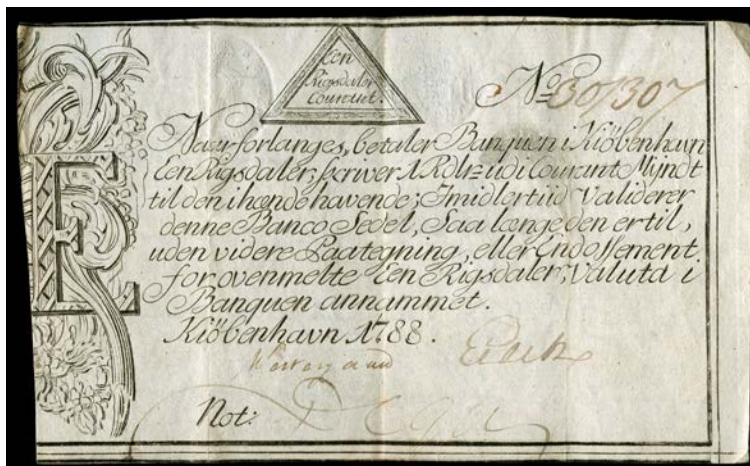 Een
Rigsdaler
Courant.
No 301307
E
Naar forlanges, betaler Banquen i Kiöbenhavn
Een Rigsdaler, skriver 1 Rdlr udi Courant Mÿndt
til den ihændehavende; Imidlertiid Validerer
denne Banco Sedel, Saa længe den er til,
uden videre Paategning, eller Endossement
for ovenmelte Een Rigsdaler, Valuta i
Banquen annammet.
Kiöbenhavn 1788.
Not: